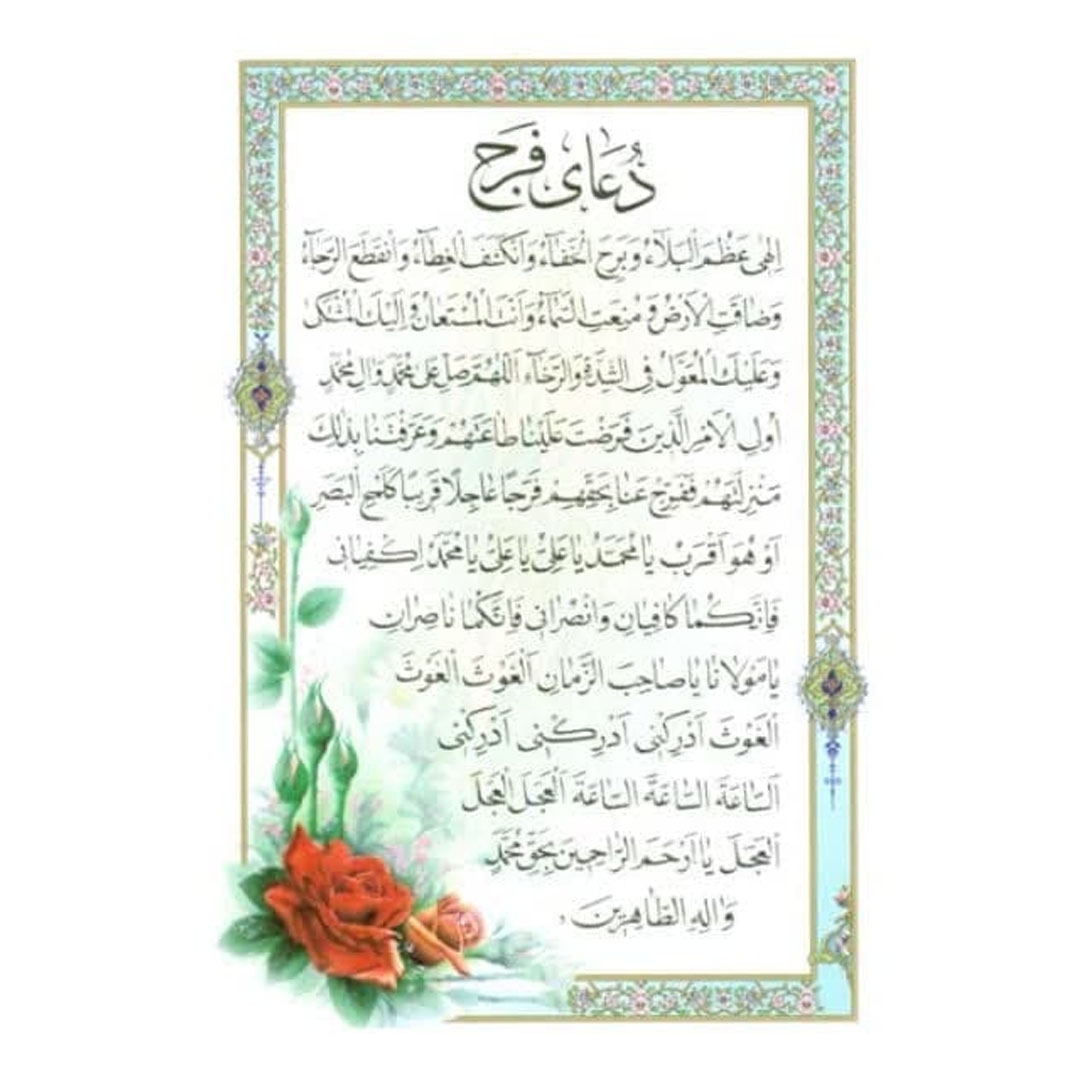 دُعَای فَرَج
اِلٰهی عَظُمَ الْبَلٰاۤءُ وَ بَرِحَ الْخَفٰاۤءُ وَ انْكَشَفَ الْغِطٰاۤءُ وَ انْقَطَعَ الرَّجٰاۤءُ
وَ ضٰاقَتِ الْاَرْضُ وَ مُنِعَتِ السَّمٰاۤءُ وَ اَنْتَ الْمُسْتَعٰانُ وَ اِلَيْكَ الْمُشْتَكىٰ
وَ عَلَيْكَ الْمُعَوَّلُ فِی الشِّدَّةِ وَ الرَّخٰاۤءِ اَللّٰهُمَّ صَلِّ عَلىٰ مُحَمَّدٍ وَ اٰلِ مُحَمَّدٍ
اُولِی الْاَمْرِ الَّذينَ فَرَضْتَ عَلَيْنٰا طٰاعَتَهُمْ وَ عَرَّفْتَنٰا بِذٰلِكَ
مَنْزِلَتَهُمْ فَفَرِّجْ عَنّٰا بِحَقِّهِمْ فَرَجًا عٰاجِلًا قَريبًا كَلَمْحِ الْبَصَرِ
اَوْ هُوَ اَقْرَبُ يٰا مُحَمَّدُ يٰا عَلِیُّ يٰا عَلِیُّ يٰا مُحَمَّدُ اِكْفِيٰانی
فَاِنَّكُمٰا كٰافِيٰانِ وَ انْصُرٰانی فَاِنَّكُمٰا نٰاصِرٰانِ
يٰا مَوْلٰانٰا يٰا صٰاحِبَ الزَّمٰانِ الْغَوْثَ الْغَوْثَ
الْغَوْثَ اَدْرِكْنی اَدْرِكْنی اَدْرِكْنی
السّٰاعَةَ السّٰاعَةَ السّٰاعَةَ الْعَجَلَ الْعَجَلَ
الْعَجَلَ يٰا اَرْحَمَ الرّٰاحِمينَ بِحَقِّ مُحَمَّدٍ
وَ اٰلِهِ الطّٰاهِرينَ